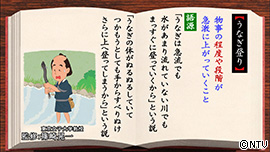 【うなぎ登り】
物事の程度や段階が
急激に上がっていくこと
語源
「うなぎは急流でも
水があまり流れていない川でも
まっすぐに登っていくから」という説
「うなぎの体がぬるぬるしていて
つかもうとしても手からすべりぬけ
さらに上へ登ってしまうから」という説
監修:篠崎晃一
©NTV